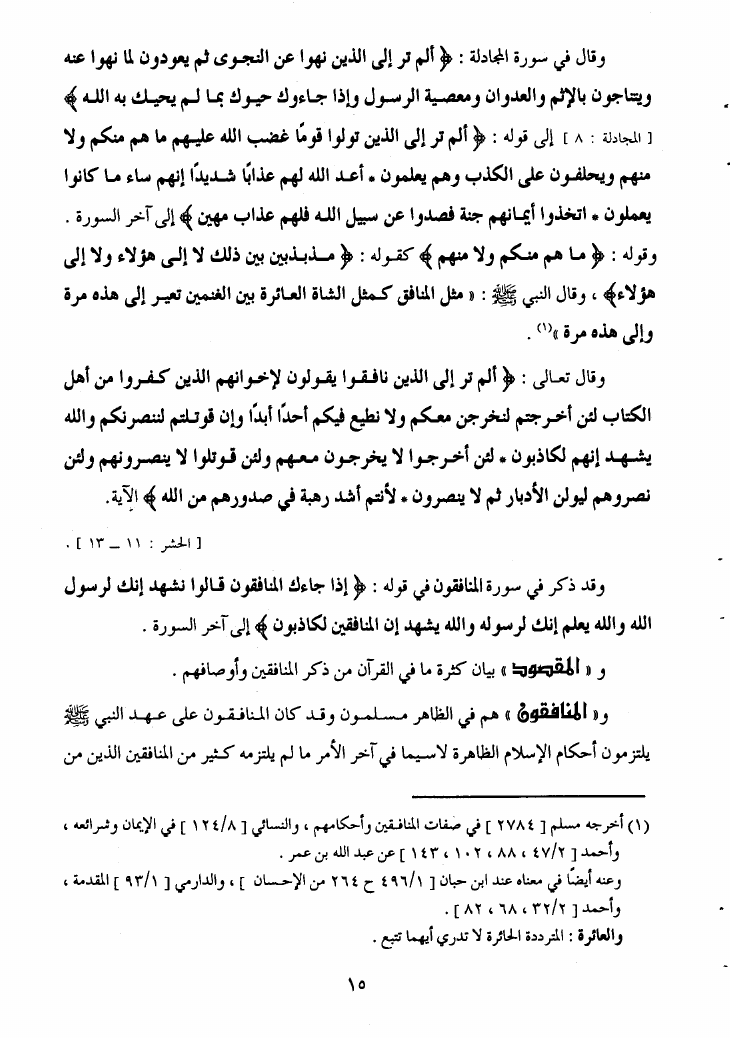 وقال في سورة المجادلة : ﴿ ألم تر إلى الذين نهوا عن النجوى ثم يعودون لما نهوا عنه
ويتناجون بالإثم والعدوان ومعصية الرسول وإذا جاءوك حيوك بما لم يحيك به الله ﴾
[ المجادلة : ٨ ] إلى قوله : ﴿ ألم تر إلى الذين تولوا قومًا غضب الله عليهم ما هم منكم ولا
منهم ويحلفون على الكذب وهم يعلمون * أعد الله لهم عذابًا شديدًا إنهم ساء ما كانوا
يعملون * اتخذوا أيمانهم جنة فصدوا عن سبيل الله فلهم عذاب مهين ﴾ إلى آخر السورة .
وقوله : ﴿ ما هم منكم ولا منهم ﴾ كقوله : ﴿ مذبذبين بين ذلك لا إلى هؤلاء ولا إلى
هؤلاء﴾ ، وقال النبي ﷺ : « مثل المنافق كمثل الشاة العائرة بين الغنمين تعير إلى هذه مرة
وإلى هذه مرة »(١) .
وقال تعالى : ﴿ ألم تر إلى الذين نافقوا يقولون لإخوانهم الذين كفروا من أهل
الكتاب لئن أخرجتم لنخرجن معكم ولا نطيع فيكم أحدًا أبدًا وإن قوتلتم لننصرنكم والله
يشهد إنهم لكاذبون * لئن أخرجوا لا يخرجون معهم ولئن قوتلوا لا ينصرونهم ولئن
نصروهم ليولن الأدبار ثم لا ينصرون * لأنتم أشد رهبة في صدورهم من الله ﴾ الآية.
[ الحشر : ١١ ــ ١٣ ] .
وقد ذكر في سورة المنافقون في قوله : ﴿ إذا جاءك المنافقون قالوا نشهد إنك لرسول
الله والله يعلم إنك لرسوله والله يشهد إن المنافقين لكاذبون ﴾ إلى آخر السورة .
و « المقصود » بيان كثرة ما في القرآن من ذكر المنافقين وأوصافهم .
و« المنافقون » هم في الظاهر مسلمون وقد كان المنافقون على عهد النبي ﷺ
يلتزمون أحكام الإسلام الظاهرة لاسيما في آخر الأمر ما لم يلتزمه كثير من المنافقين الذين من
(١) أخرجه مسلم [ ٢٧٨٤ ] في صفات المنافقين وأحكامهم ، والنسائي [ ١٢٤/٨ ] في الإيمان وشرائعه ،
وأحمد [ ٤٧/٢ ، ٨٨ ، ١٠٢ ، ١٤٣ ] عن عبد الله بن عمر .
وعنه أيضًا في معناه عند ابن حبان [ ٤٩٦/١ ح ٢٦٤ من الإحسان ] ، والدارمي [ ٩٣/١ ] المقدمة ،
وأحمد [ ٣٢/٢ ، ٦٨ ، ٨٢ ] .
والعائرة : المترددة الحائرة لا تدري أيهما تتبع .
١٥